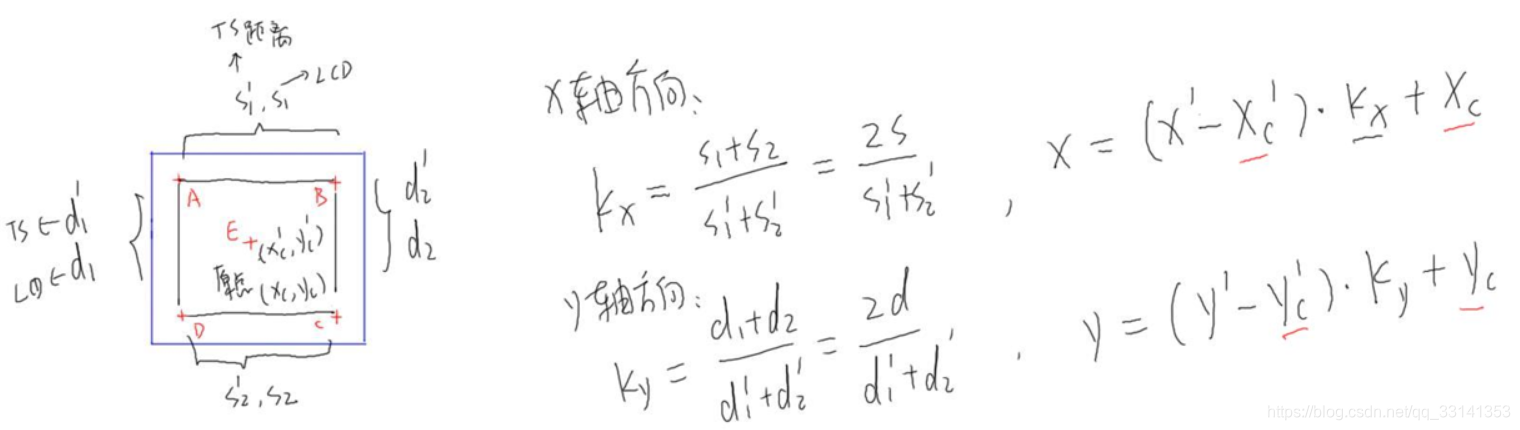 TS距离
s₁', s₁ → LCD
A B
TS ← d₁'
LCD ← d₁
d₂'
d₂
E (x'c, y'c)
原点 (xc, yc)
D C
s₂', s₂
X轴方向:
kx = (s₁+s₂)/(s₁'+s₂') = 2s/(s₁'+s₂') , x = (x' - x'c)·kx + xc
y轴方向:
ky = (d₁+d₂)/(d₁'+d₂') = 2d/(d₁'+d₂') , y = (y' - y'c)·ky + yc
https://blog.csdn.net/qq_33141353